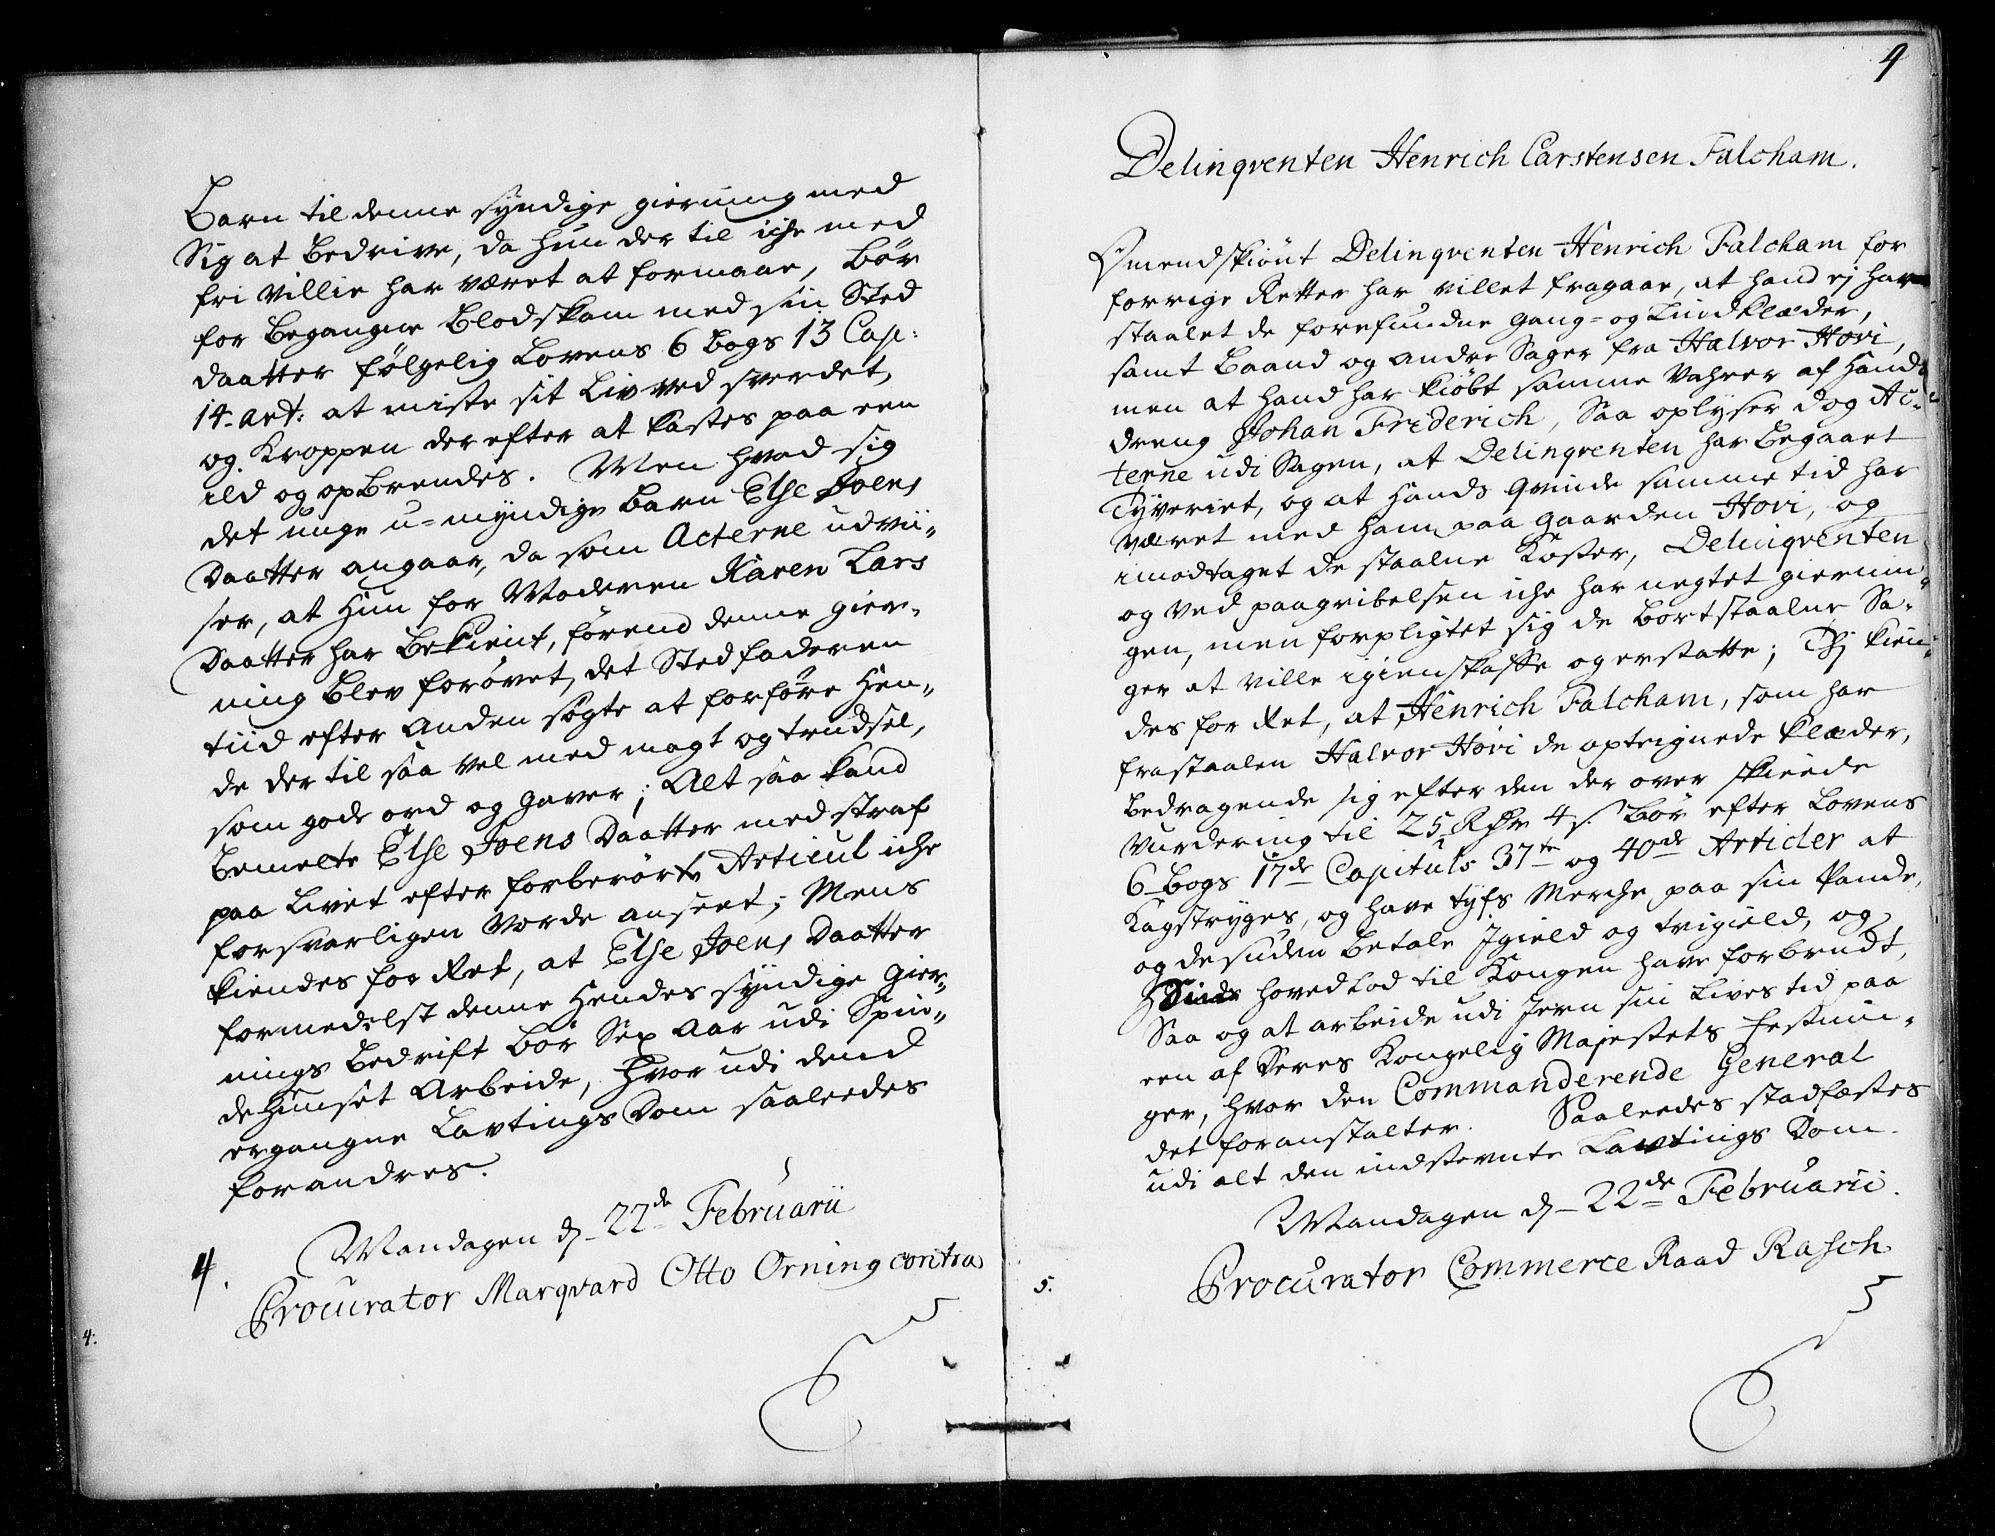 Barn til denne syndige gierning med
Sig at bedrive, da hun der til iche med
fri villie har været at formaae, bør
for begangne Blodskam med sin Sted
daatter følgelig Lovens 6 bogs 13 Cap:
14. Art: at miste sit Liv ved sverdet,
og Kroppen der efter at kastes paa een
ild og opbrendes. Men hvad sig
det unge u=myndige barn Else Joens
Daatter angaar, da som Acterne udvii„
ser, at hun for Moderen Karen Lars
Daatter har bekient, førend denne gier„
ning blev forøvet, det Stedfaderen
tiid efter anden søgte at forføre hen„
de der til saa vel med magt og trudsel,
som gode ord og gaver; Alt saa kand
bemelte Else Joens Daatter med straf
paa Livet efter forberørte Articul iche
forsvarligen vorde anseet; Mens
kiendes for Ret, at Else Joens Daatter
formedelst denne hendes syndige gier„
nings bedrift bør Sex Aar udi Spin„
dehuuset Arbeide, hvor udi dend
ergangne Lavtings Dom saaleedes
forandres.
Mandagen d. 22de Februarii
4.
Procurator Marqvard Otto Orning contra
4:
9
Delinqventen Henrich Carstensen Falcham.
Omendskiønt Delinqventen Henrich Falcham for
forrige Retter har villet fragaae, at hand ej har
staalet de forefundne gang= og Liindklæder,
samt baand og andre Sager fra Halvor Hovi,
men at hand har kiøbt samme vahrer af hands
dreng Johan Friderich, Saa oplyser dog Ac„
terne udi Sagen, at Delinqventen har begaaet
Tyveriet, og at hands qvinde samme tid har
været med ham paa gaarden Hovi, og
imodtaget de staalne Koster, Delinqventen
og ved paagribelsen iche har negtet giernin„
gen, men forpligtet sig de bortstaalne Sa„
ger at ville igienskaffe og erstatte; Thj kien„
des for Ret, at Henrich Falcham, som har
frastaalen Halvor Hovi de optegnede klæder,
bedragende sig efter den der over skeede
Vurdering til 25 Rdr 4 s. bør efter Lovens
6 bogs 17de Capituls 37te og 40de Articler at
Kagstryges, og have tyfs Merche paa sin Pande,
og desuden betale Igield og tvigield, og
Sin hovedlod til Kongen have forbrudt,
Saa og at arbeide udi Jern sin Lives tid paa
een af Deres Kongelig Majestets Festnin„
ger, hvor den Commanderende General
det foranstalter. Saaleedes stadfæstes
udi alt den indstevnte Lavtings Dom.
Mandagen d. 22de Februarii.
5.
Procurator Commerce Raad Rasch